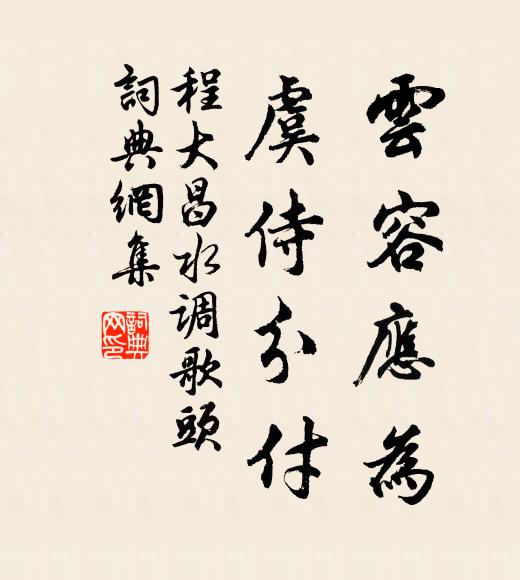 雲容應為
虞侍分付
程大昌水调歌頭
詞典網集
詞典网印